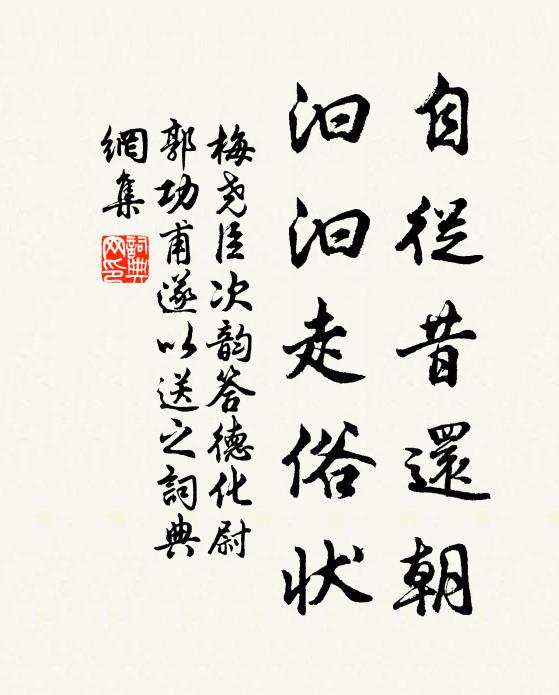 自從昔還朝
汩汩走俗状
梅尧臣次韵答德化尉
郭功甫遂以送之詞典
網集
詞典网印